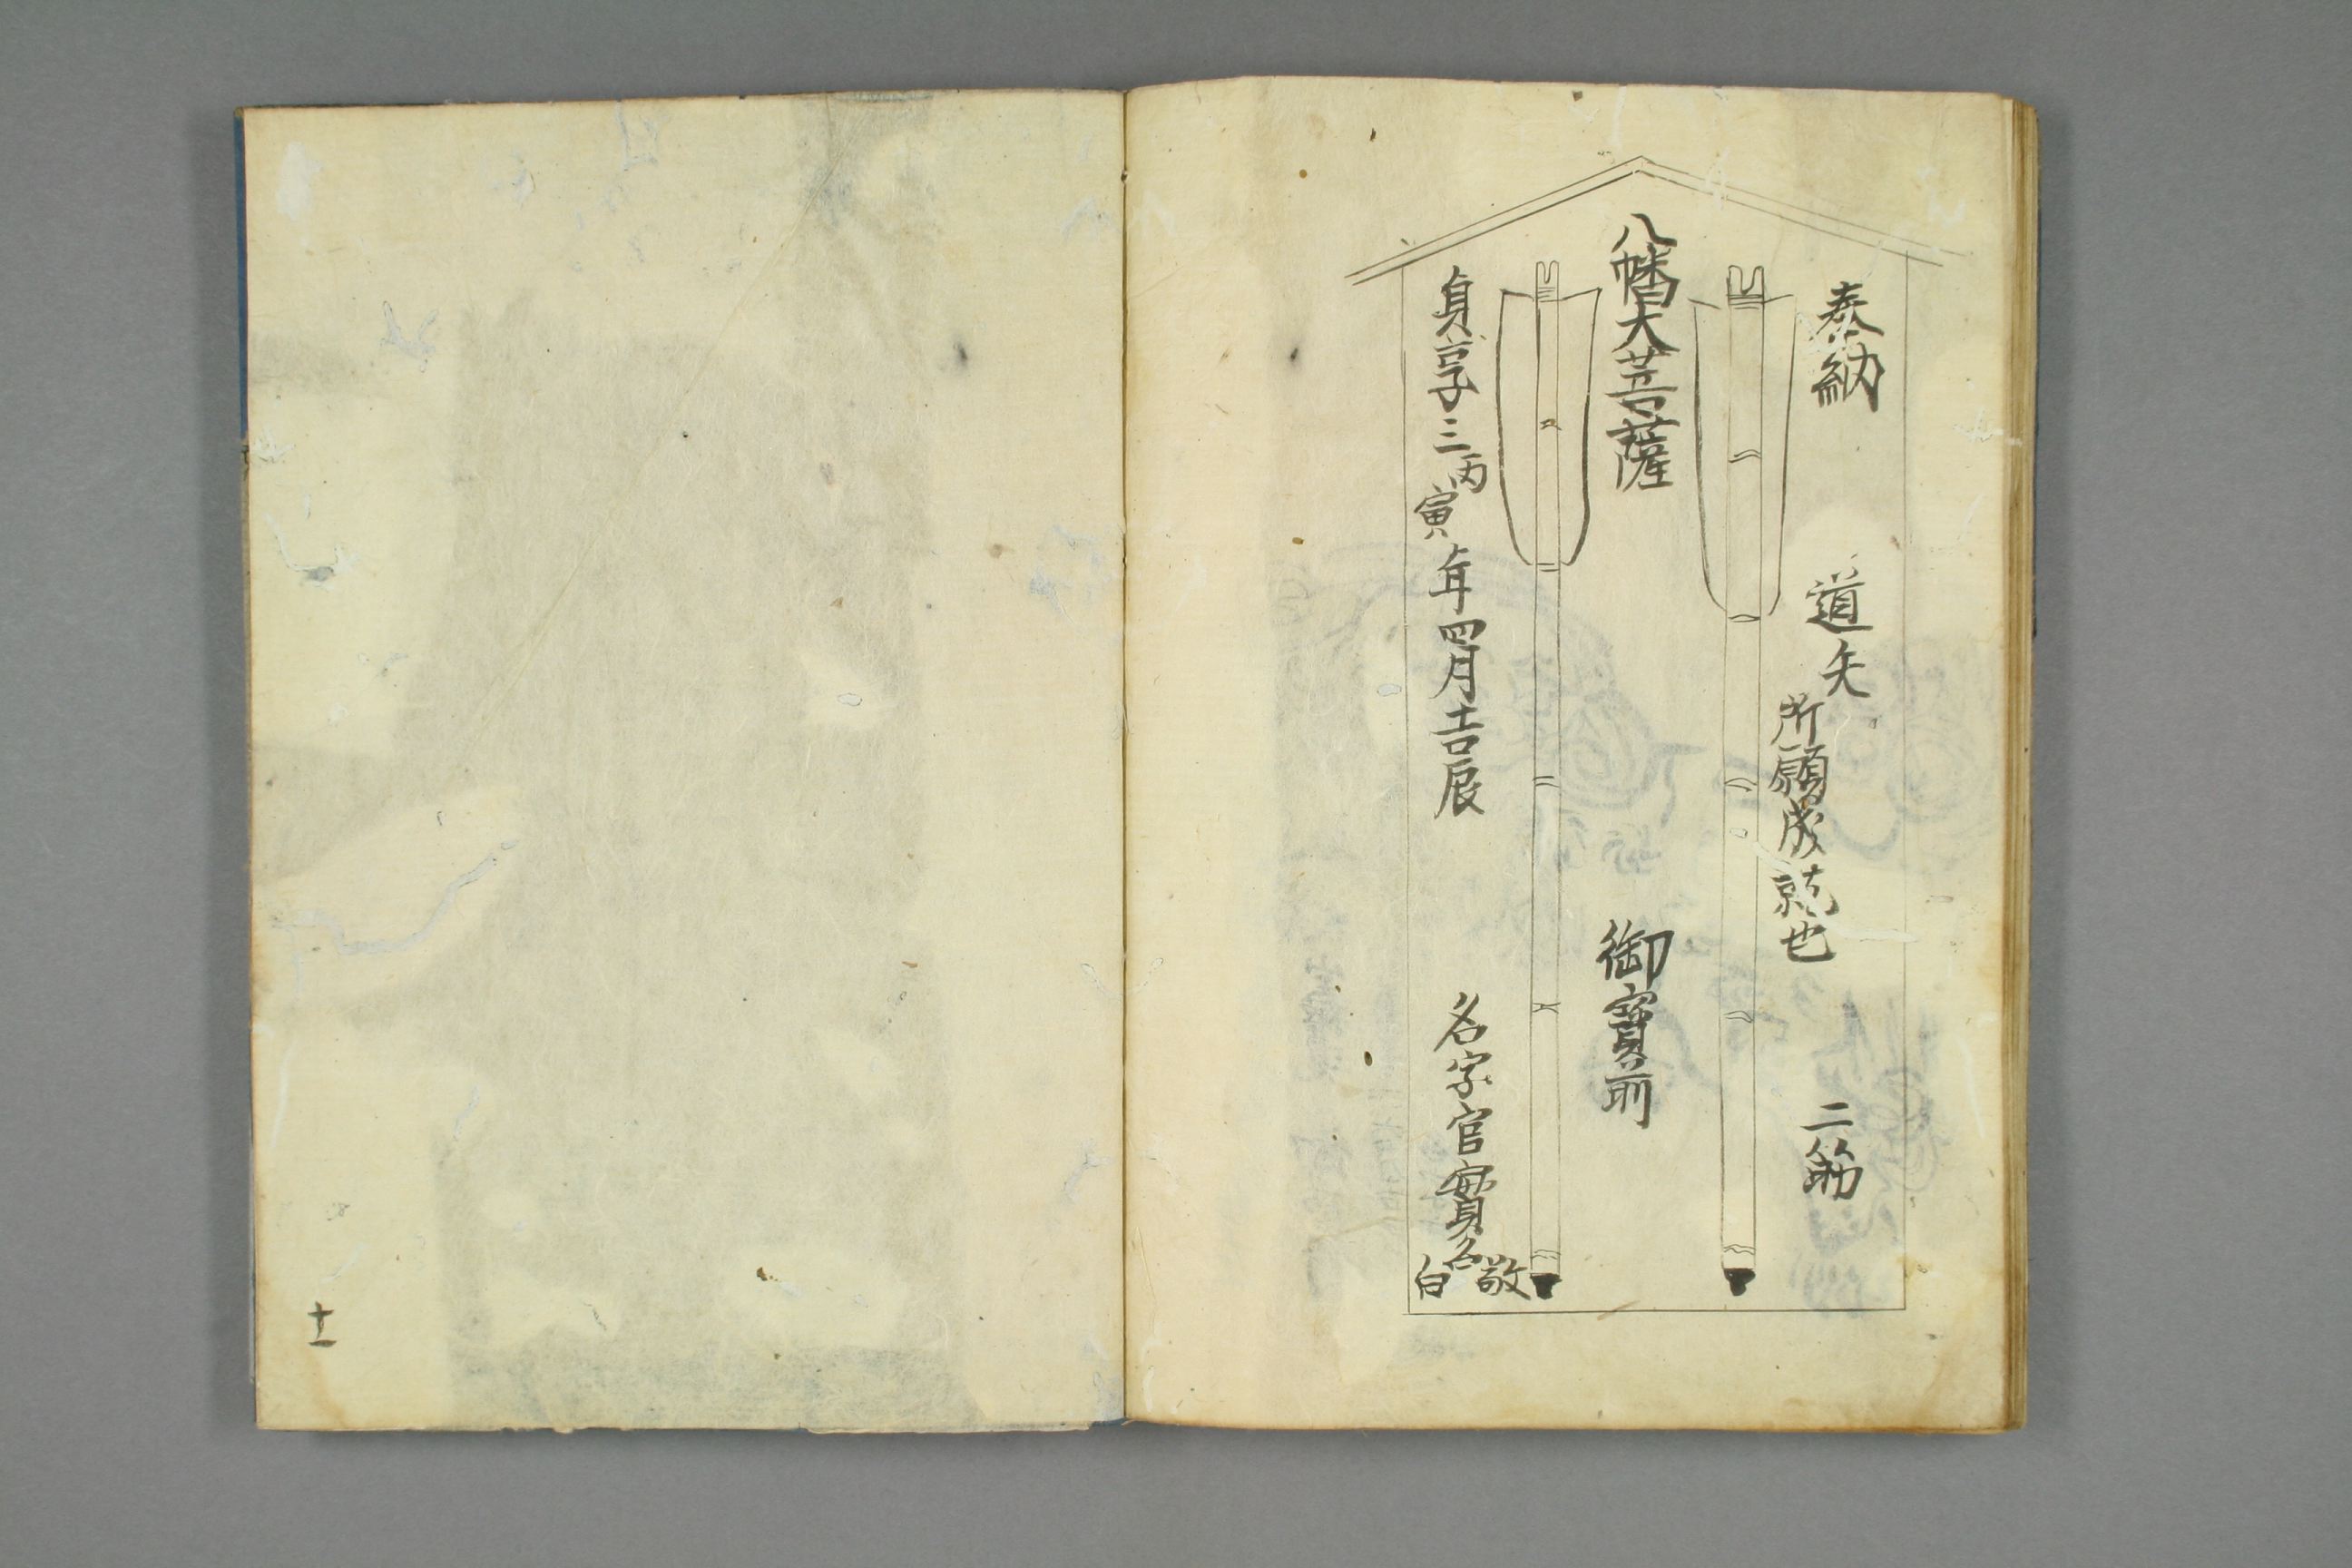 奉納
道矢
所願成就也
二筋
八幡大菩薩
御寳前
貞享三丙寅年四月吉辰
名字官實名
敬白
十一